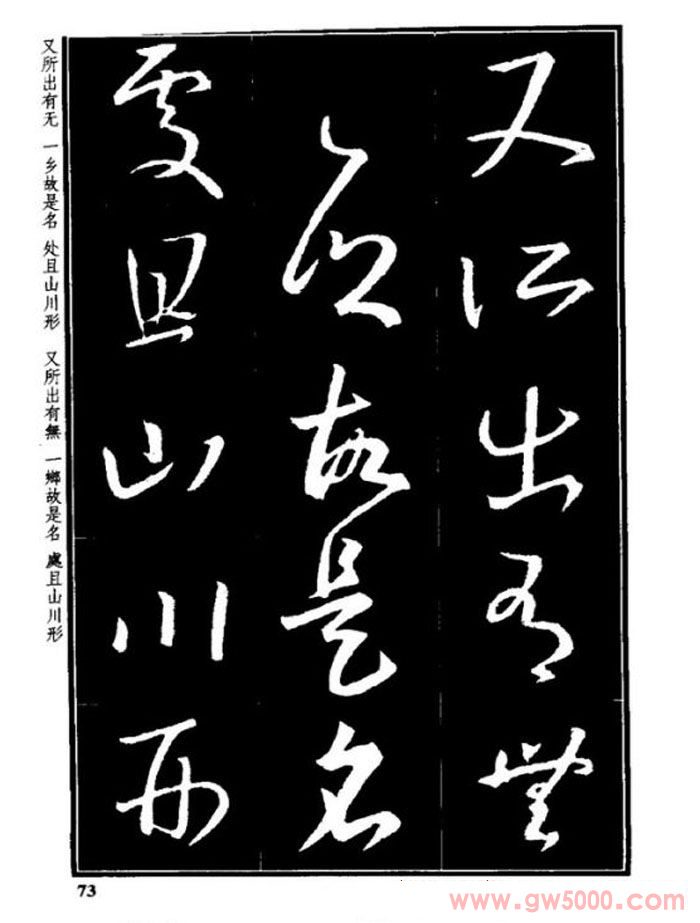 又所出有無
一鄉故是名
處且山川形
又所出有无 一乡故是名 处且山川形 又所出有無 一鄉故是名 處且山川形
73
www.gw5000.com